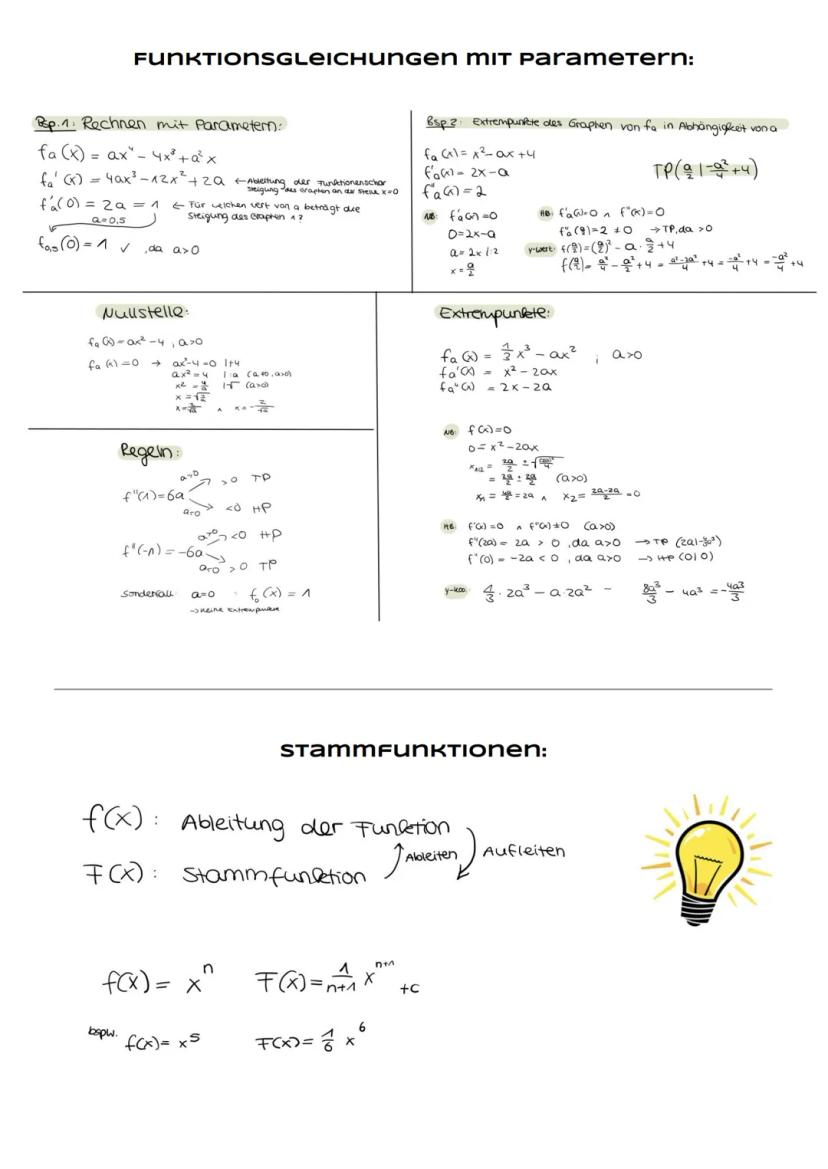 Funktionsgleichungen mit Parametern:
Bsp. 1: Rechnen mit Parametern:
fa (x) = ax⁴ - 4x³ + a² x
fa' (x) = 4ax³ - 12x² + 2a ← Ableitung der Funktionenschar
Steigung des Graphen an der Stelle x=0
f'a (0) = 2a = 1 ← Für welchen Wert von a beträgt die
Steigung des Graphen 1?
a=0,5
f0,5 (0) = 1 ✓ , da a>0
Bsp 2: Extrempunkte des Graphen von fa in Abhängigkeit von a
fa (x) = x² - ax + 4
f'a (x) = 2x - a
f''a (x) = 2
TP (a/2 | -a²/4 + 4)
NB: f'a (x) = 0
0 = 2x - a
a = 2x |:2
x = a/2
HB: f'a (x) = 0 ∧ f''(x) = 0
f''a (a/2) = 2 ≠ 0 → TP, da >0
y-Wert: f(a/2) = (a/2)² - a · a/2 + 4
f(a/2) = a²/4 - a²/2 + 4 = a²-2a²/4 + 4 = -a²/4 + 4 = -a²/4 + 4
Nullstelle:
fa (x) = ax² - 4 , a>0
fa (x) = 0 → ax² - 4 = 0 |+4
ax² = 4 |:a (a≠0, a>0)
x² = 4/a |√ (a>0)
x = √4/a
x = 2/√a ∧ x = - 2/√a
Regeln:
f''(1) = 6a
a>0 >0 TP
a<0 <0 HP
f''(-1) = -6a
a>0 <0 HP
a<0 >0 TP
Sonderfall: a=0 : f₀ (x) = 1
→ keine Extrempunkte
Extrempunkte:
fa (x) = 1/3 x³ - ax² ; a>0
fa' (x) = x² - 2ax
fa'' (x) = 2x - 2a
NB: f'(x) = 0
0 = x² - 2ax
x1/2 = 2a/2 ± √(2a)²/4
= 2a/2 ± 2a/2 (a>0)
x₁ = 4a/2 = 2a ∧ x₂ = 2a-2a/2 = 0
HB: f'(x) = 0 ∧ f''(x) ≠ 0 (a>0)
f''(2a) = 2a > 0 , da a>0 → TP (2a|-4/3a³)
f''(0) = -2a < 0 , da a>0 → HP (0|0)
y-koo. 1/3 · 2a³ - a · 2a² - 8a³/3 - 4a³ = -4a³/3
Stammfunktionen:
f(x) : Ableitung der Funktion
Ableiten Aufleiten
F(x) : Stammfunktion
f(x) = xⁿ F(x) = 1/n+1 xⁿ⁺¹ +c
bspw. f(x) = x⁵ F(x) = 1/6 x⁶